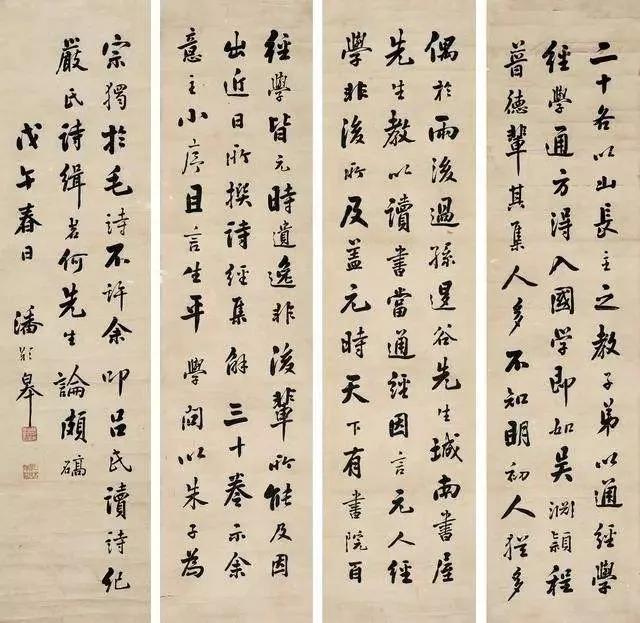 二十各以山長主之教子弟以通經學
經學通方得入國學即如吳淵穎程
普德輩其集人多不知明初人猶多
偶於雨後過孫退谷先生城南書屋
先生教以讀書當通經因言元人經
學非後所及蓋元時天下有書院百
經學皆元時遺逸非後輩所能及因
出近日所撰詩經集解三十卷示余
意主小序且言生平學問以朱子為
宗獨於毛詩不許余叩呂氏讀詩紀
嚴氏詩緝若何先生論頗確
戊午春日 潘齡皋